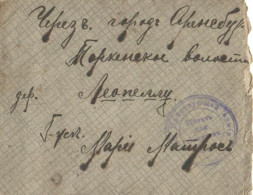 Черезъ городъ Аренсбур
Торкенской волости
дер. Леопеллу.
Г-жѣ
Марiи Матросъ